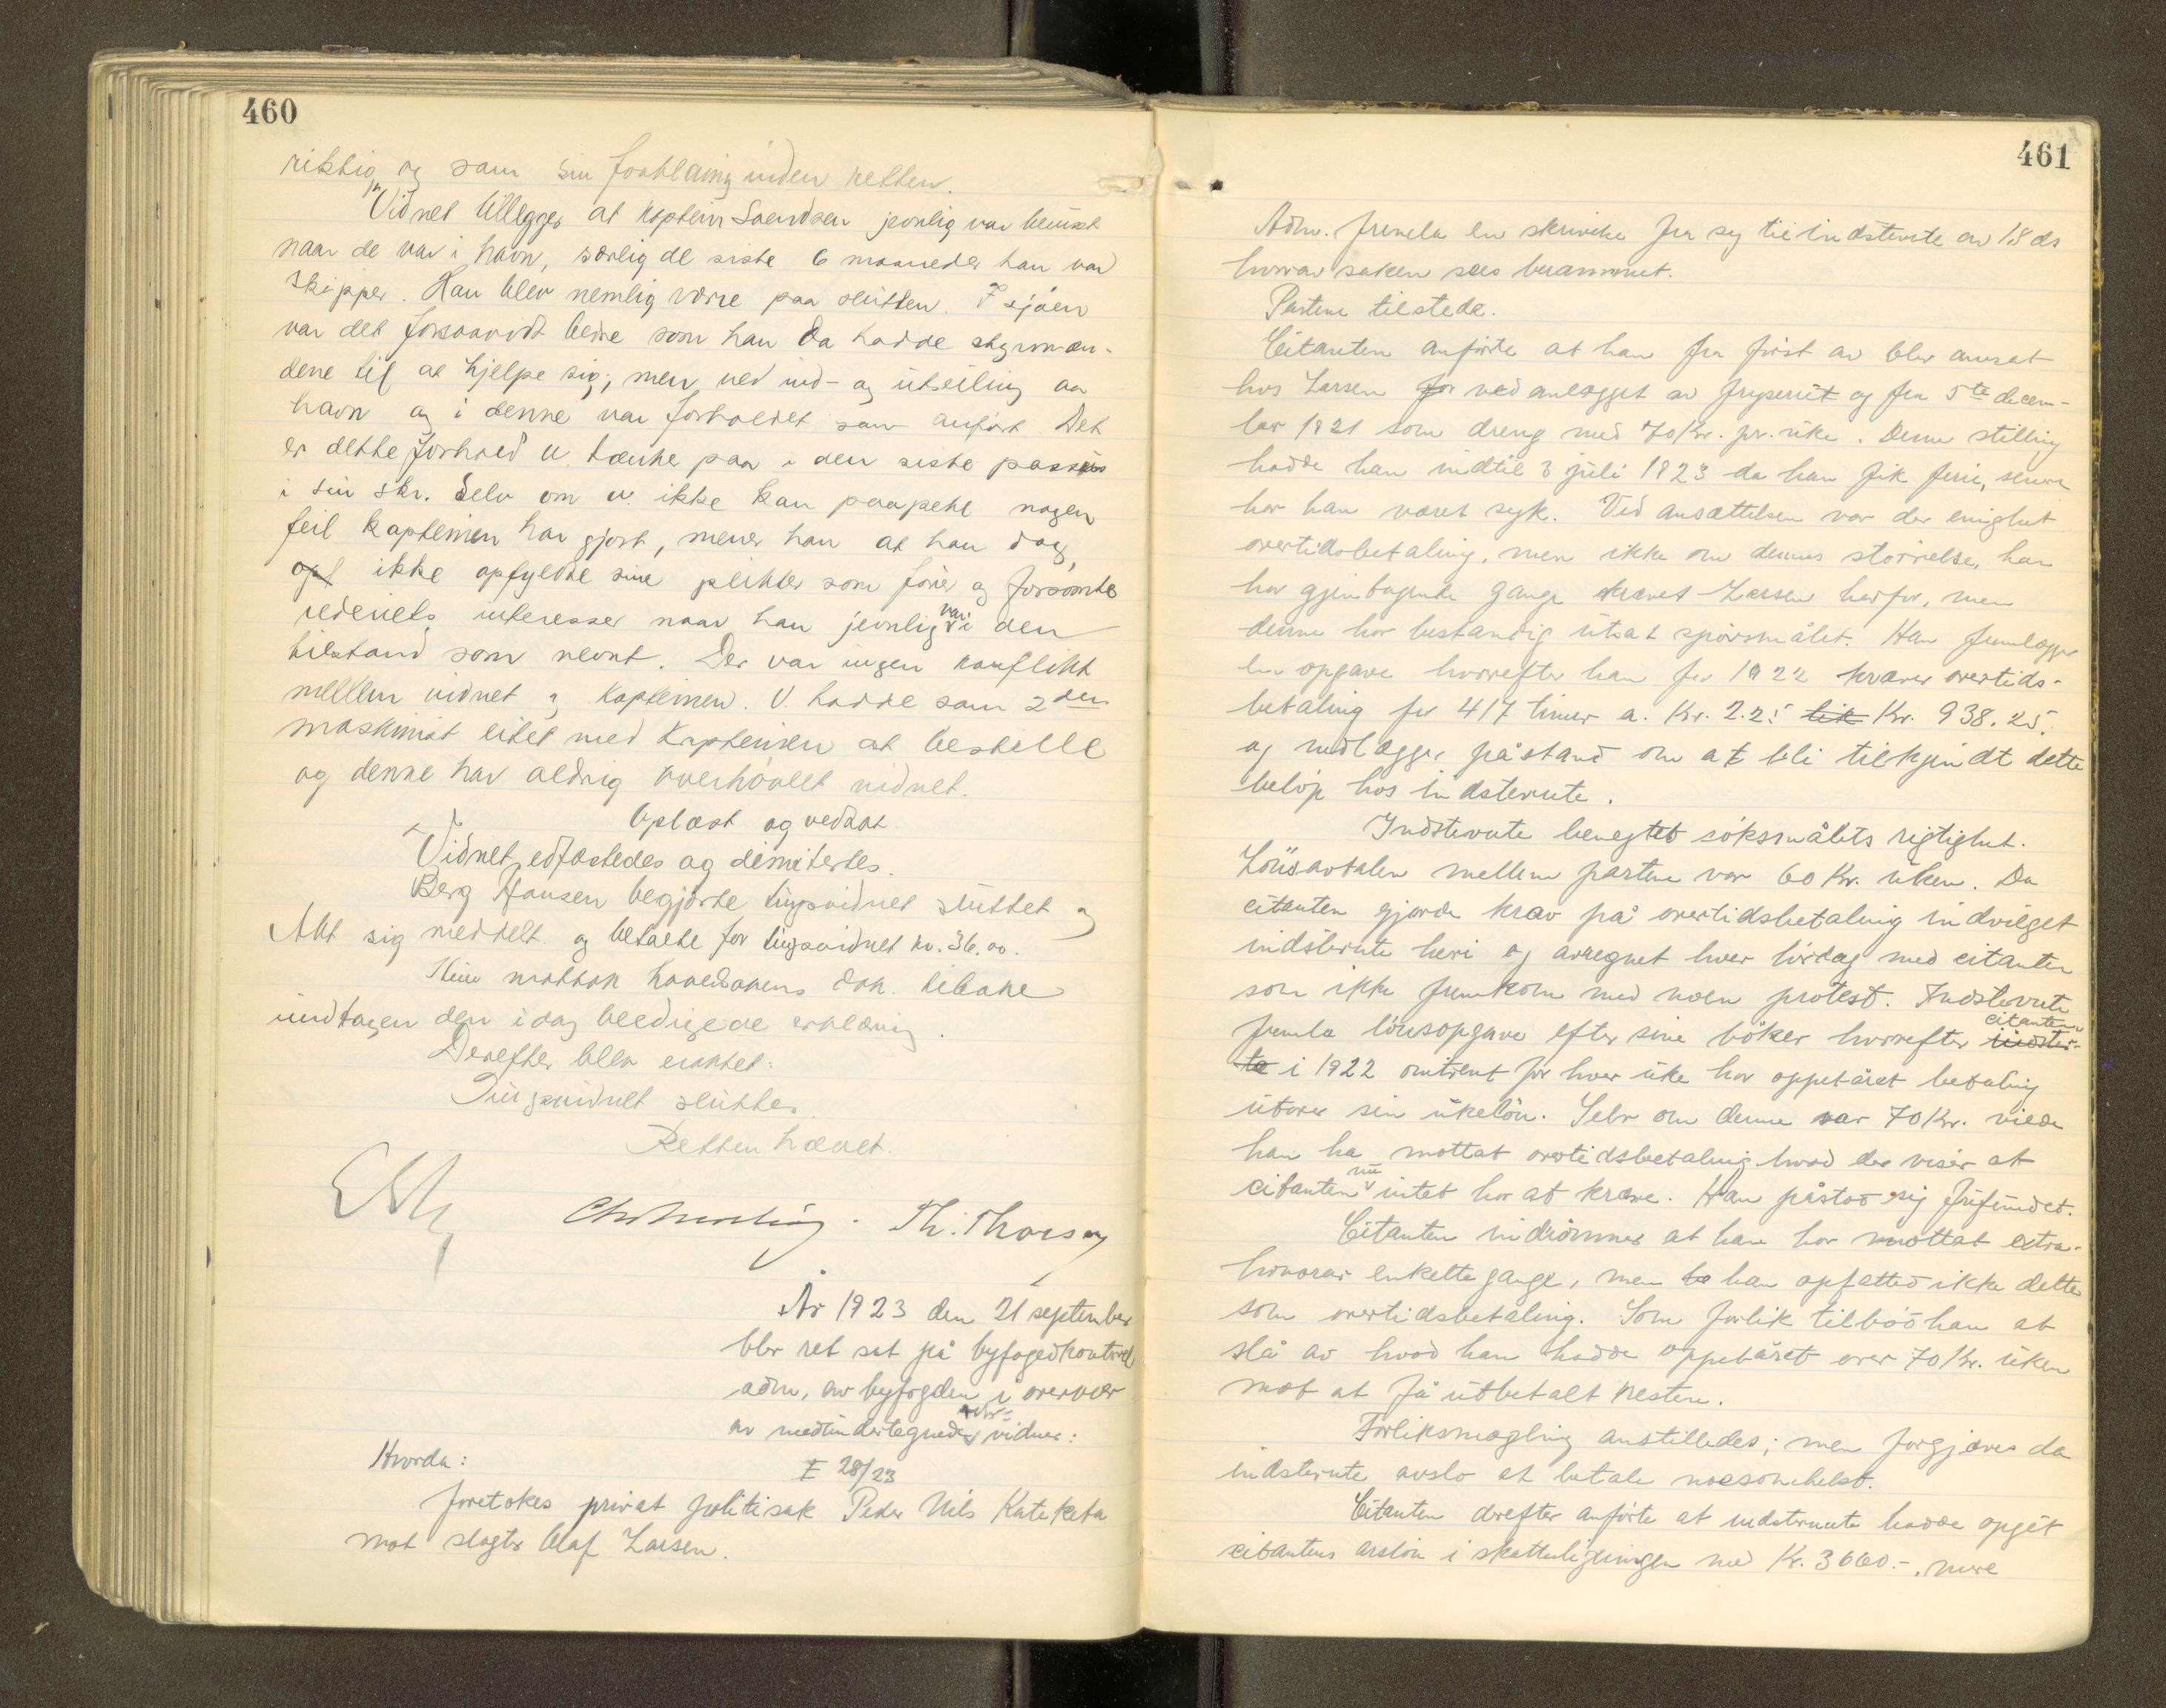 460
riktig og som sin forklaring inden retten.
Vidnet tillegger at kaptein Svendsen jevnlig var beruset
naar de var i havn, særlig de siste 6 maaneder han var
skipper. Han blev nemlig værre paa slutten. I sjøen
var det forsaavidt bedre som han da hadde styrmæn-
dene til at hjelpe sig; men ved ind- og utseiling av
havn og i denne var forholdet som anført. Det
er dette forhold v. tænke paa i den siste passus
i sin skr. Selv om v. ikke kan paapeke nogen
feil kapteinen har gjort, mener han at han dog
opf ikke opfyldte sine plikter som fører og forsømte
rederiets interesser naar han jevnlig var i den
tilstand som nevnt. Der var ingen konflikt
mellem vidnet og kapteinen. V. hadde som 2den
maskinist litet med kapteinen at bestille
og denne har aldrig overhøvlet vidnet.
Oplæst og vedtat.
Vidnet edfæstedes og dimitertes.
Berg Hansen begjærte tingsvidnet sluttet og
Akt sig meddelt og betalte for tingsvidnet kr. 36.00.
mottok hovedsakens dok. tilbake
undtagen den idag beedigede erklæring.
Derefter blev
Tingsvidnet sluttes.
Retten hævet.
Th. Thorsen
År 1923 den 21 september
blev ret sat på byfogedkontoret
adm. av byfogden i overvær
av medundertegnede retsvidner:
Hvorda: E 28/23
foretokes privat politisak Peder Nils Kateketa
mot slagter Olaf Larsen.
461
Adm. fremla en skrivelse fra sig til indstevnte av 18 ds
hvorav saken sees berammet.
Partene tilstede.
Citanten anførte at han fra først av blev ansat
hos Larsen for ved anlægget av fryseriet og fra 5te decem-
ber 1921 som dreng med 70 Kr. pr. uke. Denne stilling
hadde han indtil 3 juli 1923 da han fik ferie, senere
har han været syk. Ved ansættelsen var der enighet
overtidsbetaling, men ikke om dennes størrelse, han
har gjentagende gange krævet Larsen herfor, men
denne har bestandig utsat spørsmålet. Han fremlægger
en opgave hvorefter han for 1922 kræver overtids-
betaling for 417 timer a. Kr. 2.25 lik Kr. 938.25.
og nedlægger påstand om at bli tilkjendt dette
beløp hos indstevnte.
Indstevnte benegtet søksmålets rigtighet.
Lønsavtalen mellem partene var 60 Kr. uken. Da
citanten gjorde krav på overtidsbetaling indvilget
indstevnte heri og avregnet hver lørdag med citanten
som ikke fremkom med noen protest. Indstevnte
fremla lønsopgave efter sine bøker hvorefter citanten indstevn-
te i 1922 omtrent for hver uke har oppebåret betaling
utover sin ukeløn. Selv om denne var 70 Kr. vilde
han ha mottat overtidsbetaling hvad der viser at
citanten nu intet har at kræve. Han påstod sig frifundet.
Citanten indrømmer at han har mottat extra-
honorar enkelte gange, men ha han opfattet ikke dette
som overtidsbetaling. Som forlik tilbød han at
slå av hvad han hadde oppebåret over 70 Kr. uken
mot at få utbetalt resten.
Forliksmægling anstilledes; men forgjæves da
indstevnte avslo at betale noesomhelst.
Citanten derefter anførte at indstevnte hadde opgit
citantens årsløn i skatteligningen med Kr. 3660.-, mere